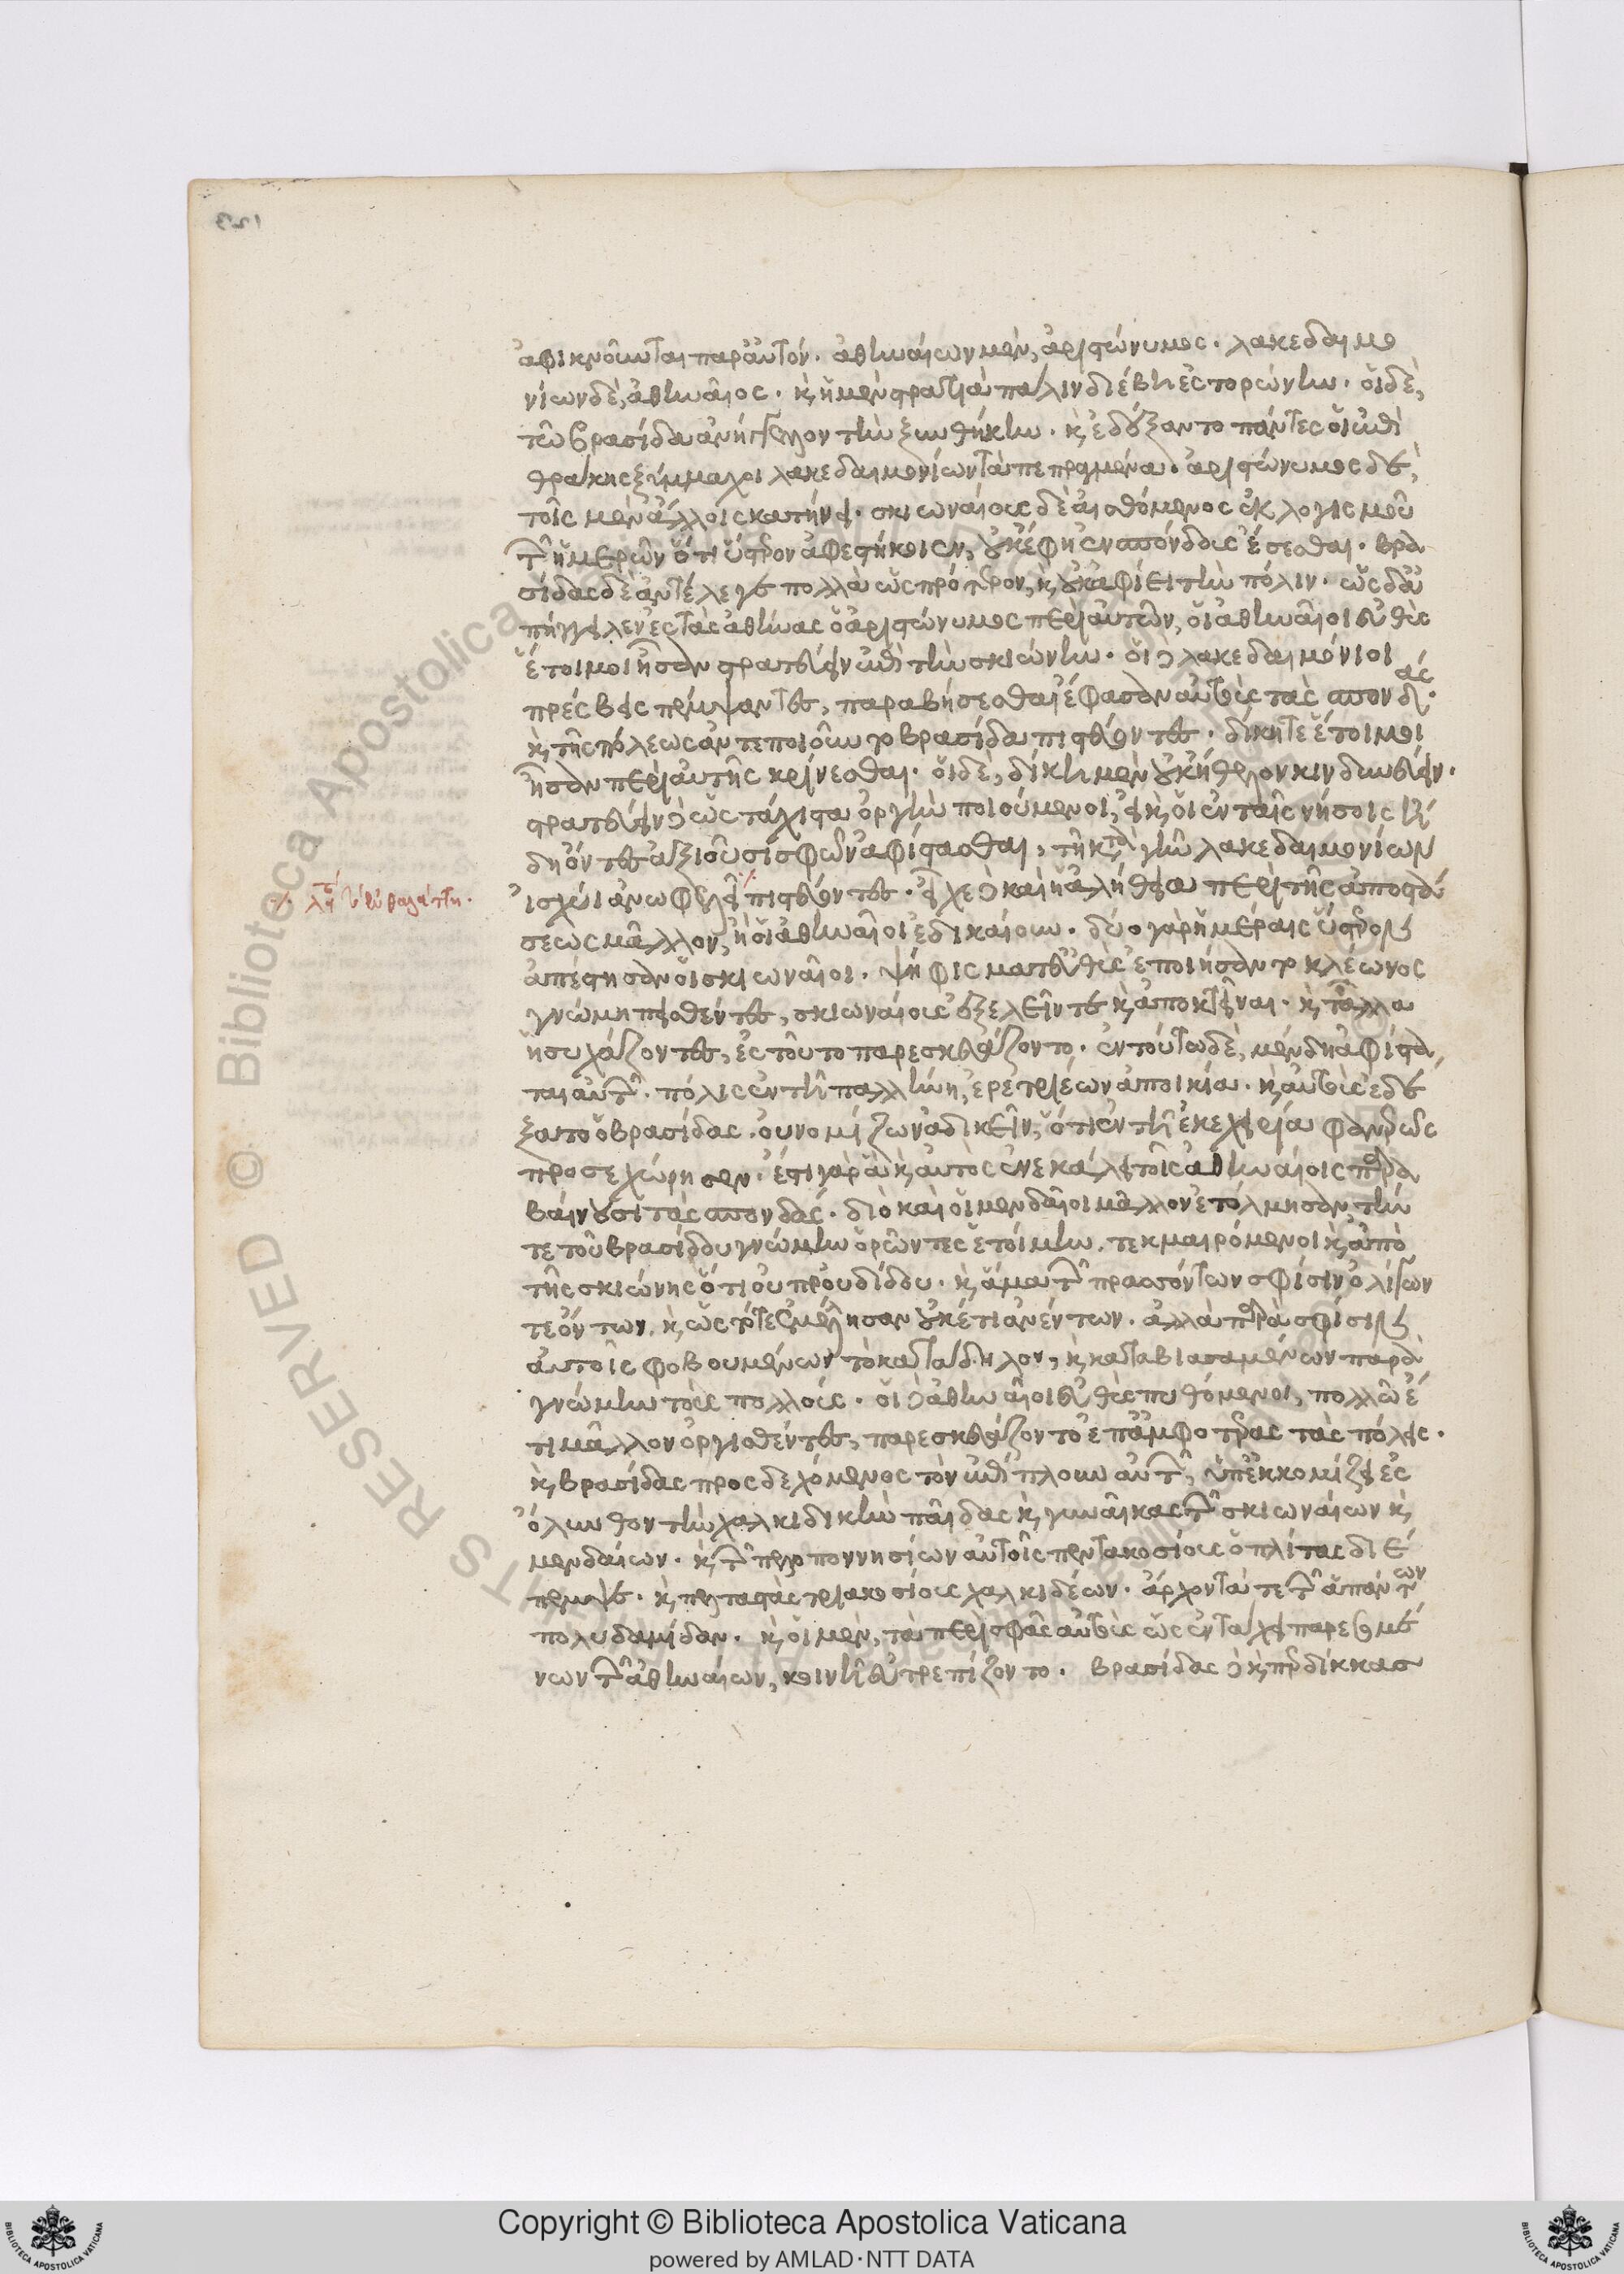 ἀφικνοῦνται παρ' αὐτόν. ἀθηναίων μὲν, ἀριστώνυμος. λακεδαιμο
νίων δὲ, ἀθήναιος. κ ἡ μὲν στρατιὰ πάλιν διέβη ἐς τορώνην. οἱ δὲ,
τῶ βρασίδα ἀνήγγελλον τὴν ξυνθήκην. κ ἐδέξαντο πάντες οἱ ἐπὶ
θράκης ξύμμαχοι λακεδαιμονίων τὰ πεπραγμένα. ἀριστώνυμος δὲ,
τοῖς μὲν ἄλλοις κατήνει. σκιωναίους δὲ αἰσθόμενος ἐκ λογισμοῦ
τῶν ἡμερῶν ὅτι ὕστερον ἀφεστήκοιεν, οὐκ ἔφη ἐνσπόνδους ἔσεσθαι. βρα
σίδας δὲ ἀντέλεγε πολλὰ ὡς πρότερον, κ οὐκ ἀφίει τὴν πόλιν. ὡς δ' ἀ
πήγγελεν ἐς τὰς ἀθήνας ὁ ἀριστώνυμος περὶ αὐτῶν, οἱ ἀθηναῖοι εὐθὺς
ἕτοιμοι ἦσαν στρατεύειν ἐπὶ τὴν σκιώνην. οἱ δὲ λακεδαιμόνιοι
πρέσβεις πέμψαντες, παραβήσεσθαι ἔφασαν αὐτοὺς τὰς σπονδάς.
κ τῆς πόλεως ἀντεποιοῦντο βρασίδα πιστεύοντες. δίκη τε ἕτοιμοι
ἦσαν περὶ αὐτῆς κρίνεσθαι. οἱ δὲ, δίκη μὲν οὐκ ἤθελον κινδυνεύειν.
στρατεύειν δὲ ὡς τάχιστα ὀργὴν ποιούμενοι, εἰ κ οἱ ἐν ταῖς νήσοις ἤ
δη ὄντες ἀξιοῦσι σφῶν ἀφίστασθαι, τῆ κατὰ γῆν λακεδαιμονίων
./. λεί τῆ ἐν θαλάττη.
ἰσχύι ἀνωφελεῖ ./. πιστεύοντες. εἶχε δὲ καὶ ἡ ἀλήθεια περὶ τῆς ἀποστά
σεως μᾶλλον, ἢ οἱ ἀθηναῖοι ἐδικαίουν. δύο γὰρ ἡμέραις ὕστερον
ἀπέστησαν οἱ σκιωναῖοι. ψήφισμα τ' εὐθὺς ἐποιήσαντο κλέωνος
γνώμη πεισθέντες, σκιωναίους ἐξελεῖν τε κ ἀποκτεῖναι. κ τἄλλα
ἡσυχάζοντες, ἐς τοῦτο παρεσκευάζοντο. ἐν τούτω δὲ, μένδη ἀφίστα
ται αὐτῶν. πόλις ἐν τῆ παλλήνη, ἐρετριέων ἀποικία. κ αὐτοὺς ἐδέ
ξατο ὁ βρασίδας. οὐ νομίζων ἀδικεῖν, ὅτι ἐν τῆ ἐκεχειρία φανερῶς
προσεχώρησαν. ἔστι γὰρ ἃ κ αὐτὸς ἐνεκάλει τοῖς ἀθηναίοις παρα
βαίνουσι τὰς σπονδάς. διὸ καὶ οἱ μενδαῖοι μᾶλλον ἐτόλμησαν, τήν
τε τοῦ βρασίδου γνώμην ὁρῶντες ἑτοίμην. τεκμαιρόμενοι κ ἀπὸ
τῆς σκιώνης ὅτι οὐ προυδίδου. κ ἅμα τῶν πρασσόντων σφίσιν ὀλίγων
τε ὄντων, κ ὡς τότε ἐμέλλησαν οὐκέτι ἀνέντων. ἀλλὰ περὶ σφίσιν
αὐτοῖς φοβουμένων τὸ κατάδηλον, κ καταβιασαμένων παρὰ
γνώμην τοὺς πολλούς. οἱ δὲ ἀθηναῖοι εὐθὺς πυθόμενοι, πολλῶ ἔ
τι μᾶλλον ὀργισθέντες, παρεσκευάζοντο ἐπ' ἀμφοτέρας τὰς πόλεις.
κ βρασίδας προσδεχόμενος τὸν ἐπίπλουν αὐτῶν, ὑπεκκομίζει ἐς
ὄλυνθον τὴν χαλκιδικὴν παῖδας κ γυναῖκας τῶν σκιωναίων κ
μενδαίων. κ τῶν πελοποννησίων αὐτοῖς πεντακοσίους ὁπλίτας διέ
πεμψε. κ πελταστὰς τριακοσίους χαλκιδέων. ἄρχοντά τε τῶν ἁπάντων
πολυδαμίδαν. κ οἱ μὲν, τὰ περὶ σφᾶς αὐτοὺς ὡς ἐν τάχει παρεσομέ
νων τῶν ἀθηναίων, κοινῆ εὐτρεπίζοντο. βρασίδας δὲ κ περδίκκας
© Biblioteca Apostolica
RESERVED
Copyright © Biblioteca Apostolica Vaticana
powered by AMLAD·NTT DATA